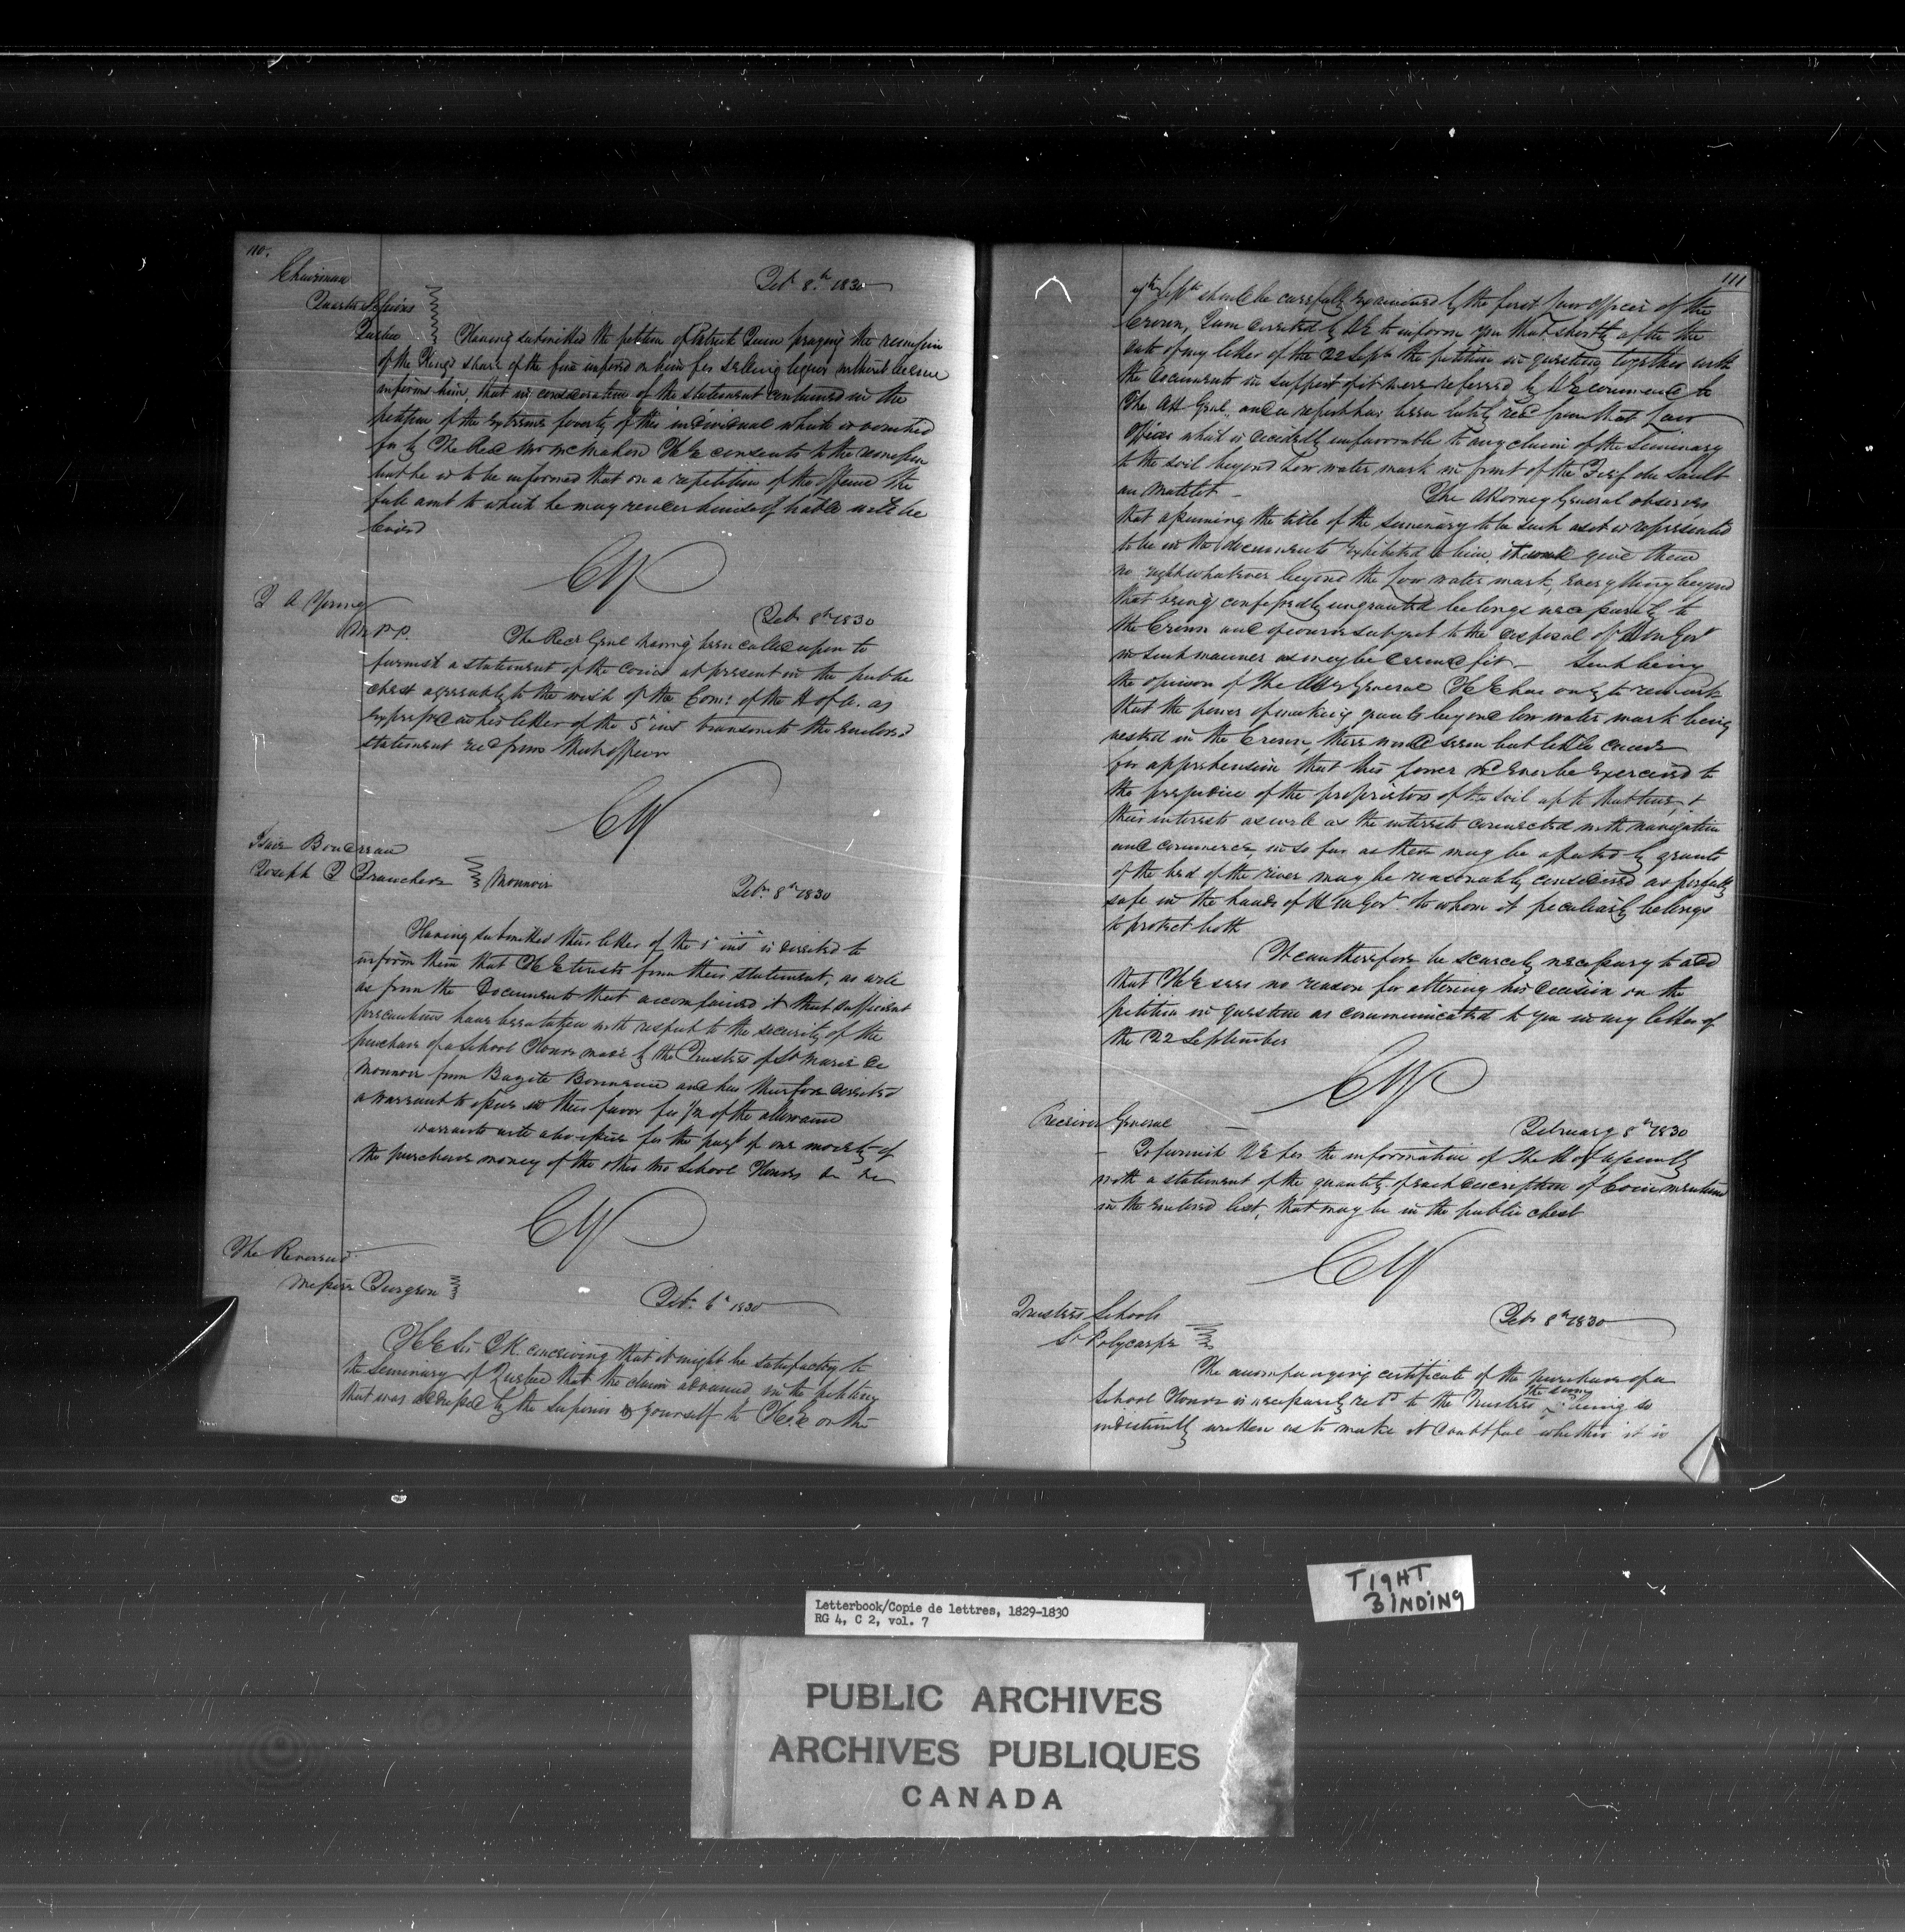 110.
Chairman
Quarter Sessions
Quebec
Feb 8.th 1830
Having submitted the petition of Patrick Quin praying the remission
of the Kings share of the fine imposed on him for selling liquor without license
informs him, that in consideration of the statement contained in the
petition of the extreme poverty of this individual which is vouched
for by The Revd Mr McMahon H E consents to the remission
but he is to be informed that on a repetition of the offence the
full amt to which he may render himself liable will be
levied
CY
T A Young
M.P.P.
Feb 8th 1830
The Recr Genl having been called upon to
furnish a statement of the Coins at present in the public
chest agreeably to the wish of the Com: of the H of A. as
expressed in his letter of the 5th inst transmits the enclosed
statement recd from that officer
CY
Isaie Boudreau
Joseph T Franchere
Monnoir
Feb. 8th 1830
Having submitted their letter of the 1st inst is directed to
inform them that H E trusts from their statement, as well
as from the Documents that accompanied it that sufficient
precautions have been taken with respect to the security of the
purchase of a School House made by the Trustees of St Marie de
Monnoir from and has therefore directed
a warrant to issue in their favor for 1/2 of the allowance
warrants will also issue for the paym't of one moiety of
the purchase money of the other two School Houses &c &c
CY
The Reverend
Messire Turgeon
Feb. 6th 1830
H E Sir J K. conceiving that it might be satisfactory to
the Seminary of Quebec that the claim advanced in the petition
that was addressed by the Superior & yourself to H E on the
111
7th Septr should be carefully examined by the first Law Officer of the
Crown, I am directed by H E to inform you that shortly after the
date of my letter of the 22 Septr the petition in question together with
the documents in support of it were referred by H E command to
The Att Genl, and a report has been lately recd from that Law
Officer which is decidedly unfavorable to any claim of the Seminary
to the soil beyond Low water mark in front of the Fief du Sault
au Matelot - The Attorney General observes
that assuming the title of the Seminary to be such as it is represented
to be in the documents exhibited to him, it would give them
no right whatever beyond the Low water mark, every thing beyond
that being confessedly ungranted belongs necessarily to
the Crown and of course subject to the disposal of Gov't
in such manner as may be deemed fit. - Such being
the opinion of the Atty General H E has only to remark
that the power of making grants beyond low water mark being
vested in the Crown, there would seem but little cause
for apprehension that this power wd ever be exercised to
the prejudice of the proprietors of the soil up to that line, &
their interests as well as the interests connected with navigation
and commerce, in so far as these may be affected by grants
of the bed of the river may be reasonably considered as perfectly
safe in the hands of H M Gov't to whom it peculiarly belongs
to protect both
It can therefore be scarcely necessary to add
that H E sees no reason for altering his decision on the
petition in question as communicated to you in my letter of
the 22 September
CY
Receiver General
February 8th 1830
To furnish H E for the information of The H of Assembly
with a statement of the quantity of each description of Coin mentioned
in the enclosed list, that may be in the public chest
CY
Trustees Schools
St Polycarpe
Feb 8th 1830
The accompanying certificate of the purchase of a
School House is necessarily retd to the Trustees the same being so
indistinctly written as to make it doubtful whether it is
TIGHT
BINDING
Letterbook/Copie de lettres, 1829-1830
RG 4, C 2, vol. 7
PUBLIC ARCHIVES
ARCHIVES PUBLIQUES
CANADA